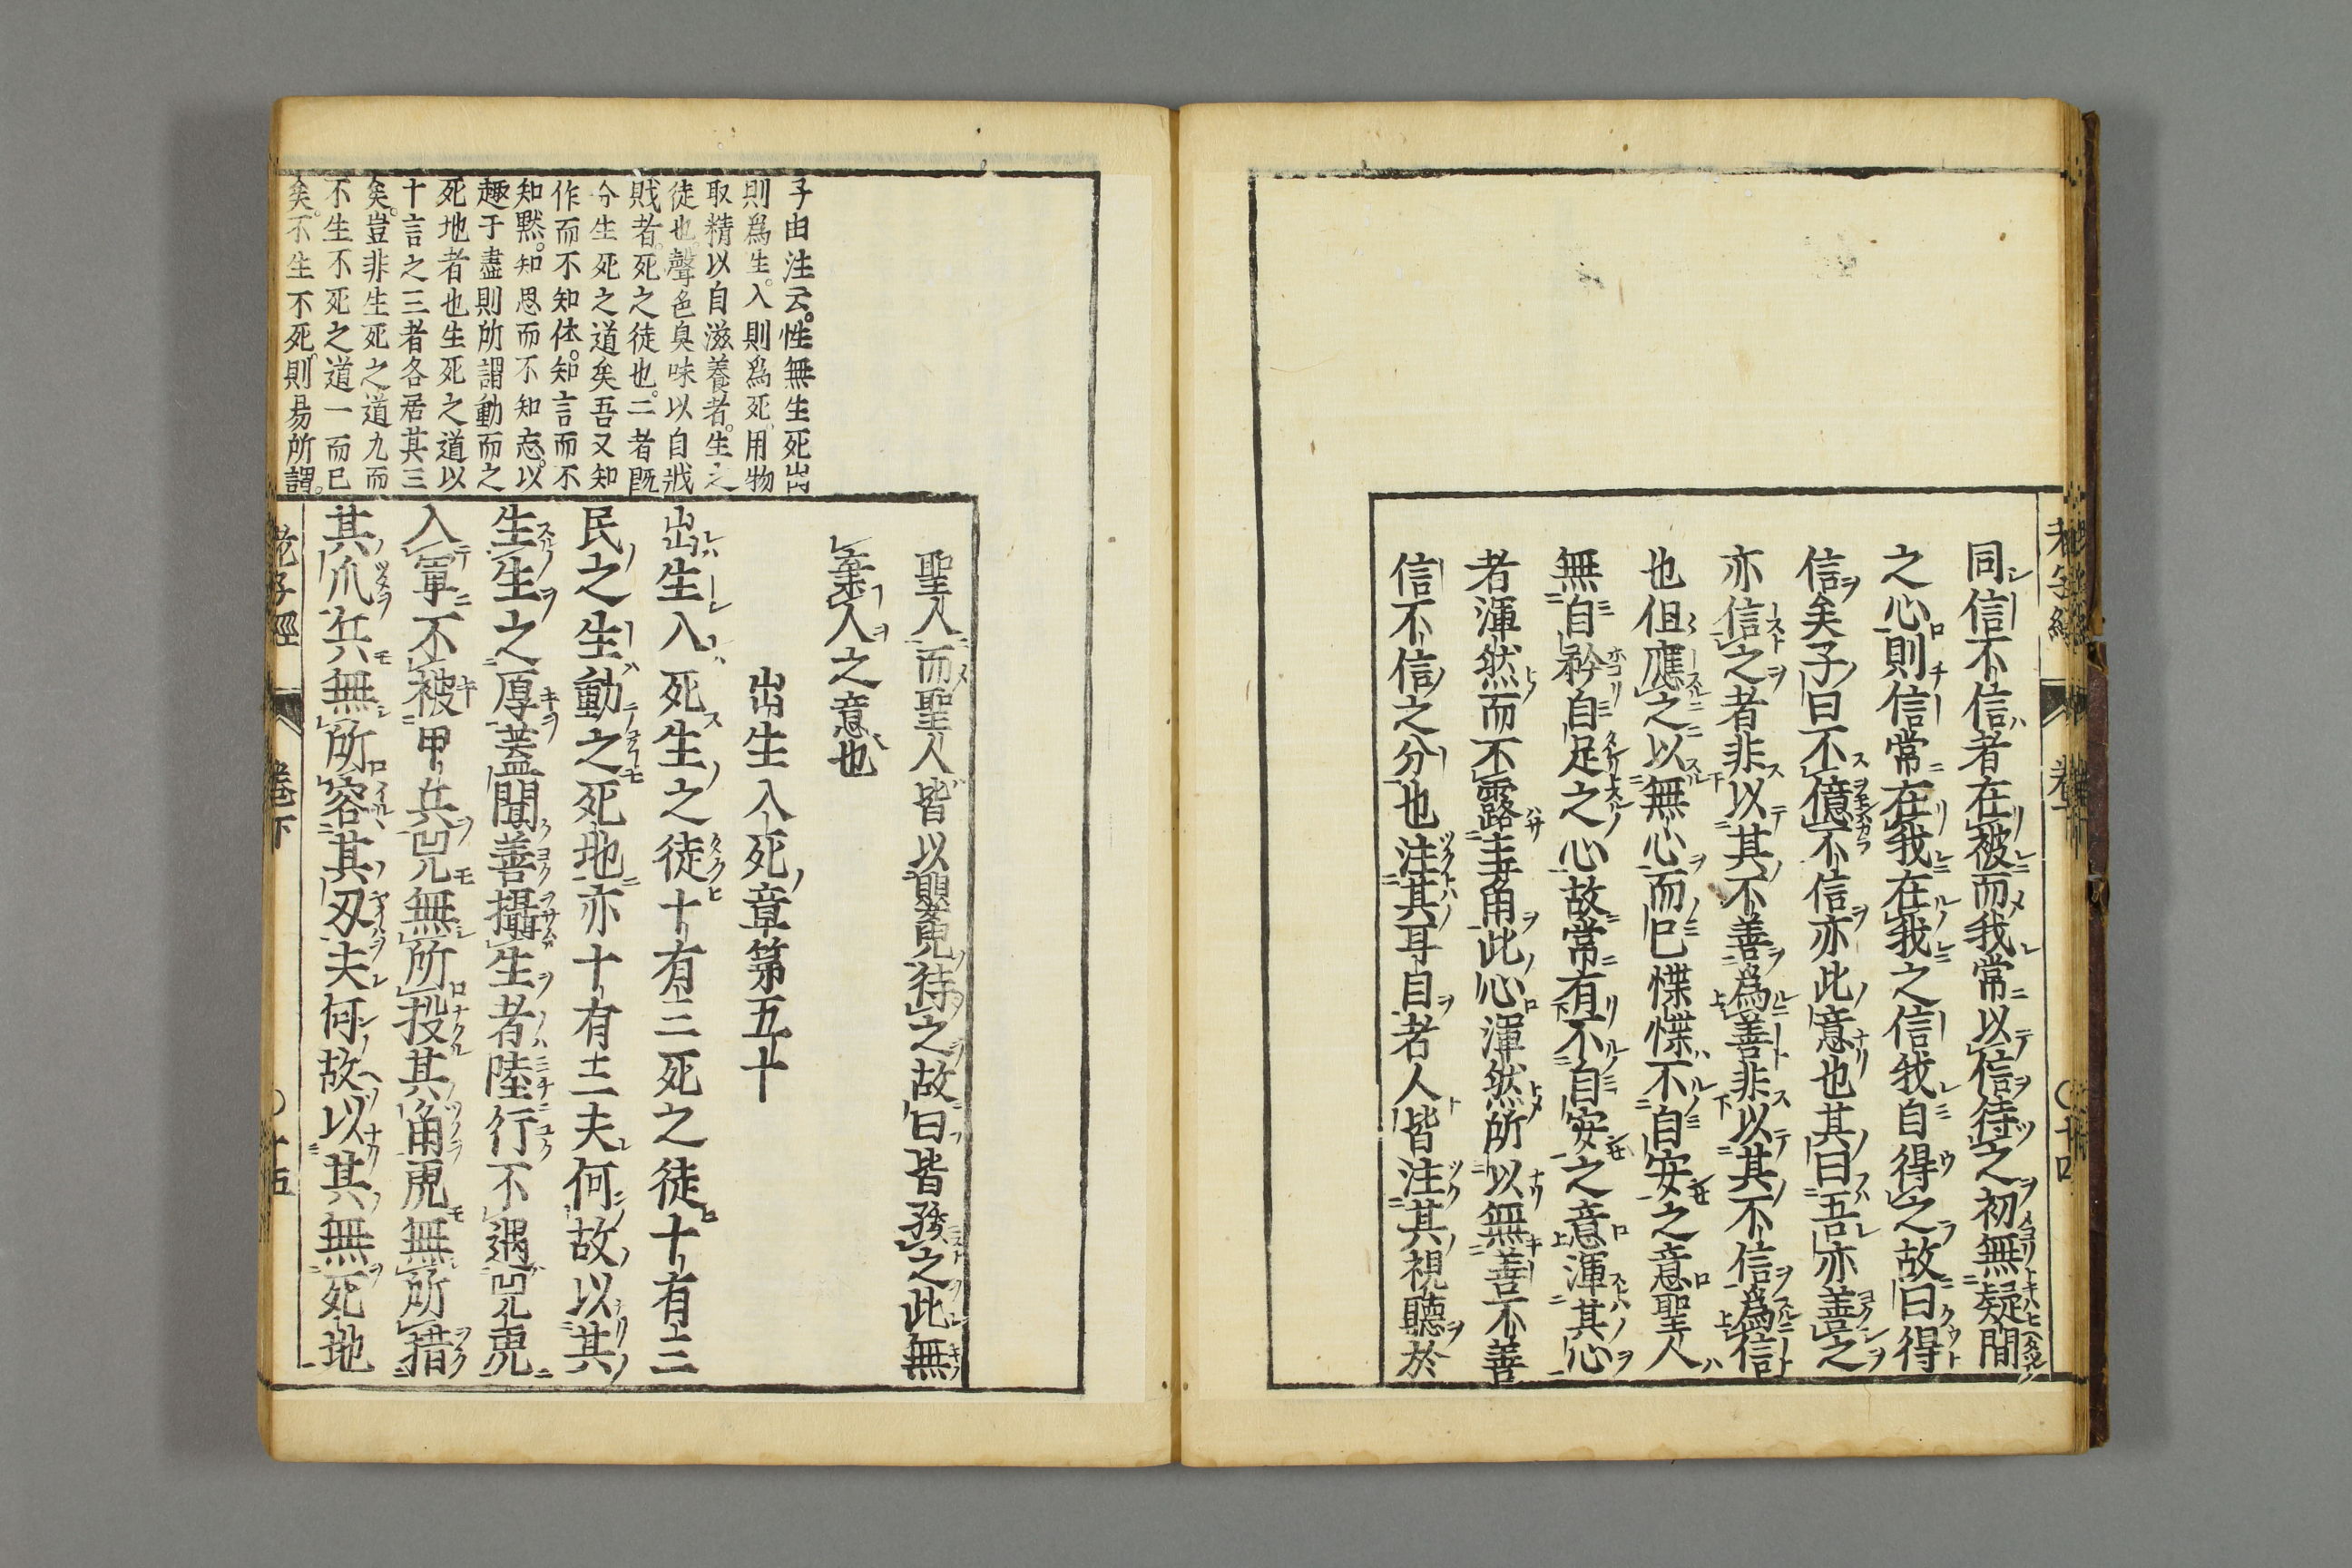 同信不信者在彼而我常以信待之初無疑間
之心則信常在我在我之信我自得之故曰得
信矣子曰不億不信亦此意也其曰吾亦善之
亦信之者非以其不善為善非以其不信為信
也但應之以無心而已惵惵不自安之意聖人
無自矜自足之心故常有不自安之意渾其心
者渾然而不露圭角此心渾然所以無善不善
信不信之分也注其耳目者人皆注其視聽於
老子經 卷下 〇十四
聖人而聖人皆以嬰兒待之故曰皆孩之此無
棄人之意也
出生入死章第五十
出生入死生之徒十有三死之徒十有三
民之生動之死地亦十有三夫何故以其
生生之厚蓋聞善攝生者陸行不遇兕虎
入軍不被甲兵兕無所投其角虎無所措
其爪兵無所容其刃夫何故以其無死地
子由注云。性無生死出
則為生。入則為死。用物
取精以自滋養者。生之
徒也。聲色臭味以自戕
賊者。死之徒也。二者既
分生死之道矣吾又知
作而不知休。知言而不
知默。知思而不知忘。以
趣于盡則所謂動而之
死地者也生死之道以
十言之三者各居其三
矣。豈非生死之道九而
不生不死之道一而已
矣。不生不死。則易所謂。
老子經 卷下 〇十五